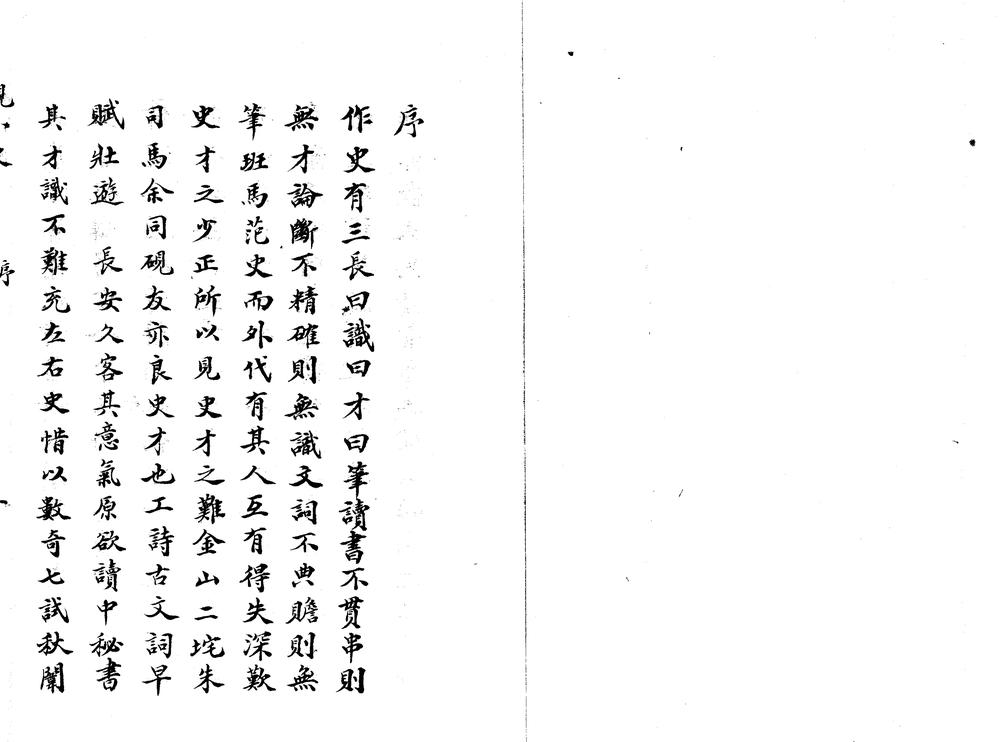 序
作史有三長曰識曰才曰筆讀書不貫串則
無才論斷不精確則無識文詞不典贍則無
筆班馬范史而外代有其人互有得失深歎
史才之少正所以見史才之難金山二垞朱
司馬余同硯友亦良史才也工詩古文詞早
賦壯遊 長安久客其意氣原欲讀中秘書
其才識不難充左右史惜以數奇七試秋闈
序